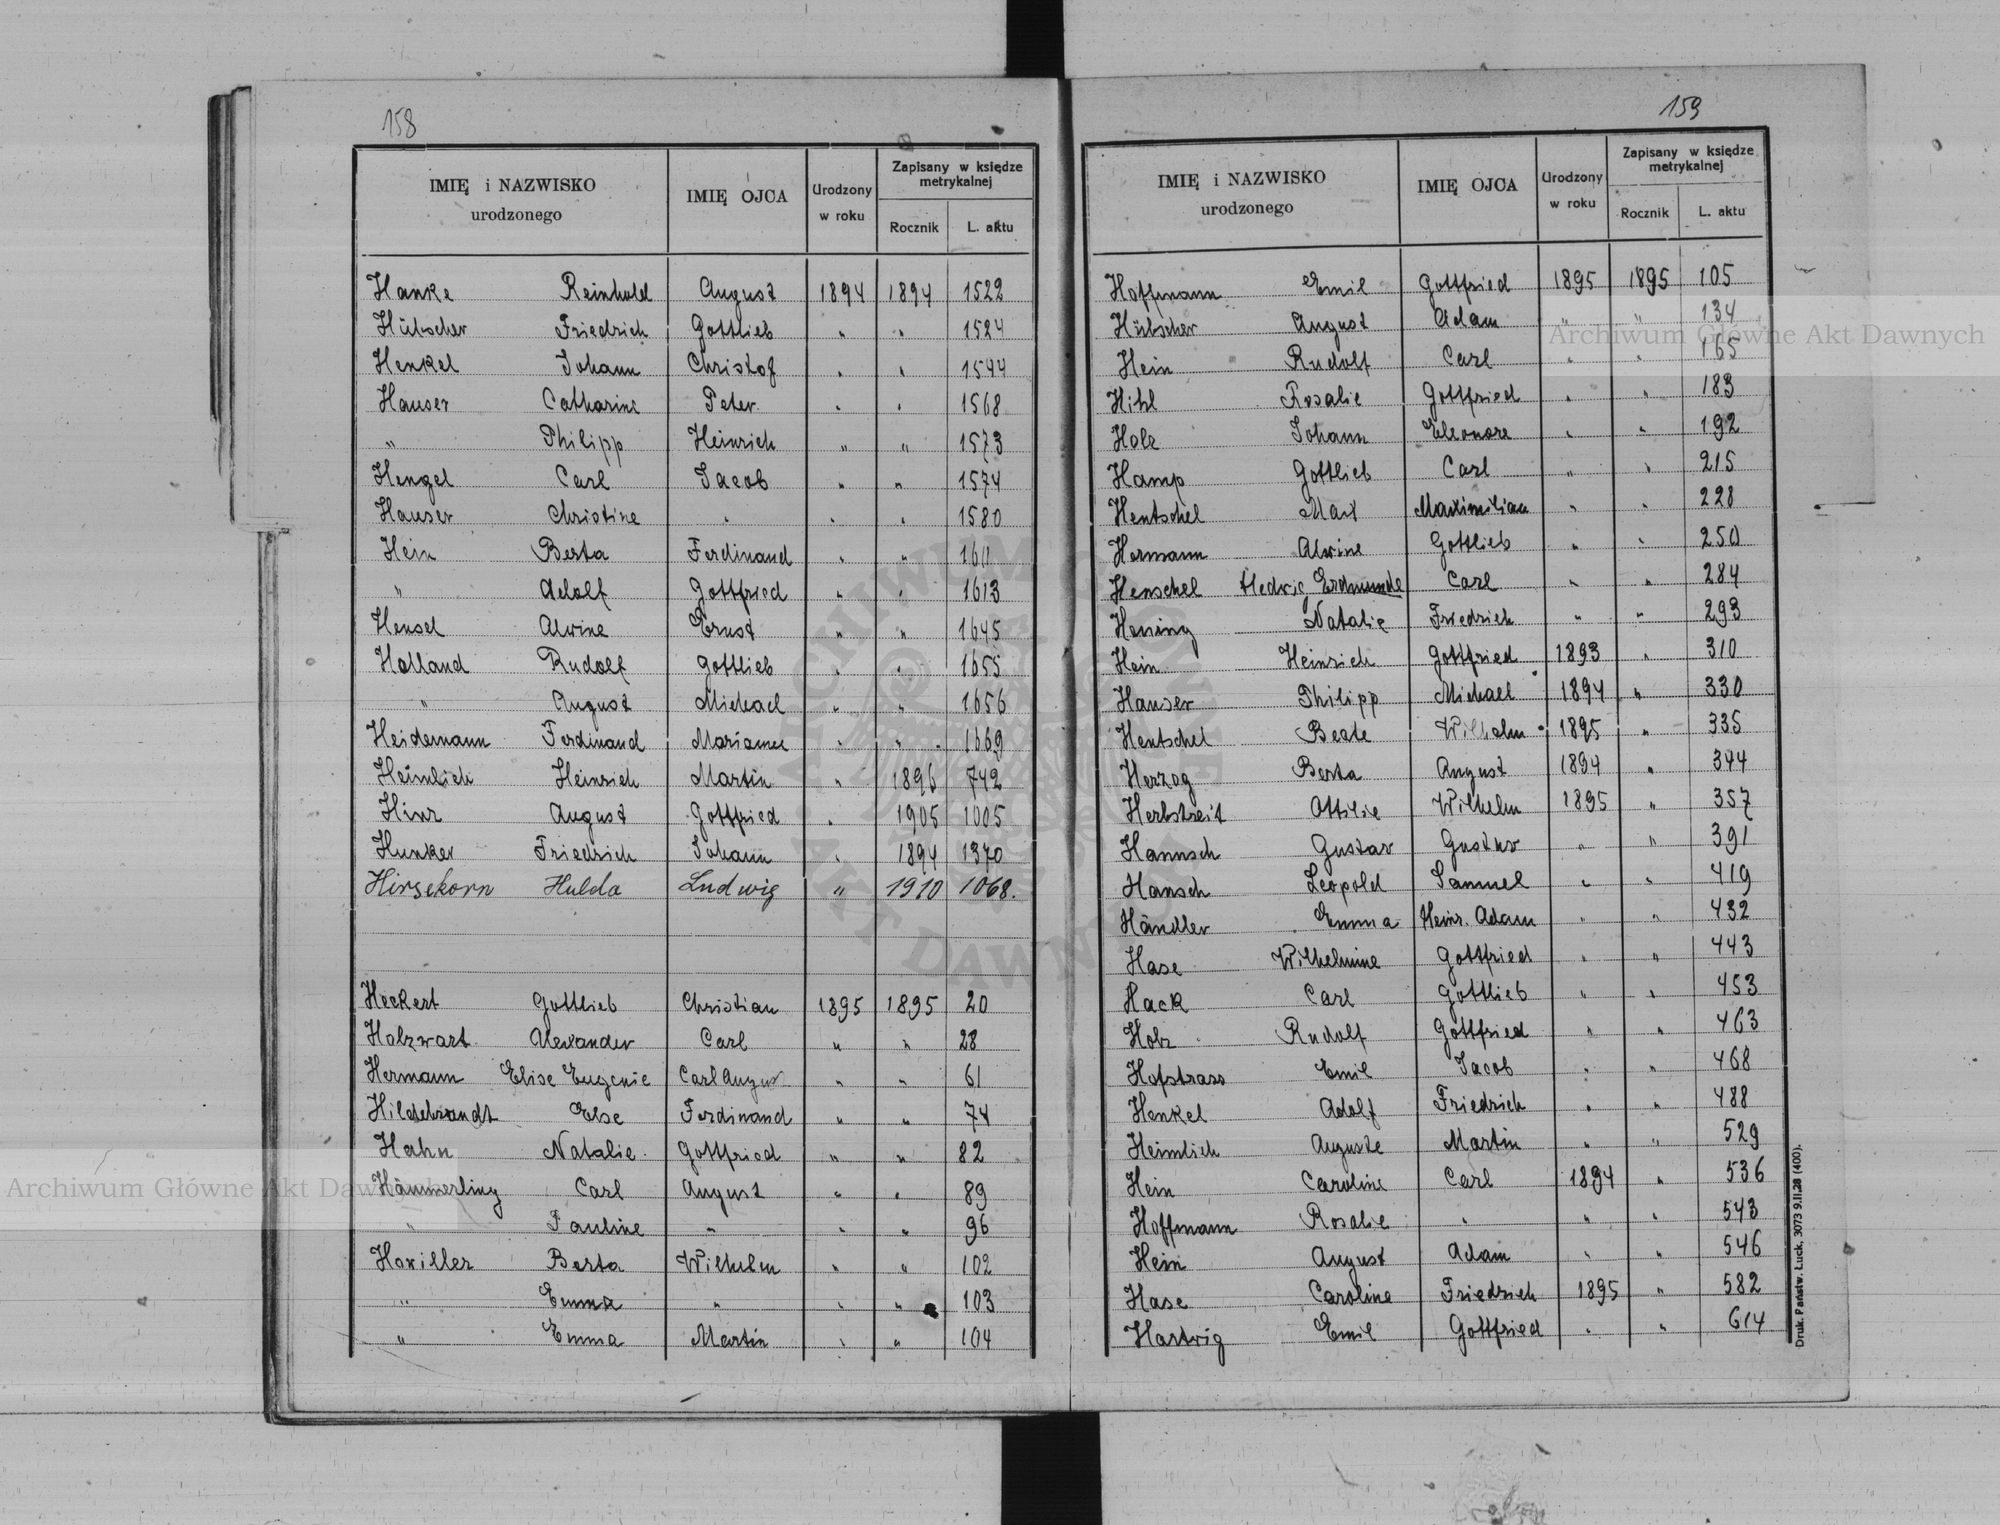 158
IMIĘ i NAZWISKO urodzonego | IMIĘ OJCA | Urodzony w roku | Zapisany w księdze metrykalnej
Rocznik | L. aktu
Hanke Reinhold August 1894 1894 1522
Hübscher Friedrich Gottlieb " " 1524
Henkel Johann Christof " " 1544
Hauser Catharine Peter " " 1568
" Philipp Heinrich " " 1573
Hengel Carl Jacob " " 1574
Hauser Christine " " " 1580
Hein Berta Ferdinand " " 1611
" Adolf Gottfried " " 1613
Hensel Alwine Ernst " " 1645
Holland Rudolf Gottlieb " " 1655
" August Michael " " 1656
Heidemann Ferdinand Marianne " " 1669
Heimlich Heinrich Martin " 1896 742
Hinz August Gottfried " 1905 1005
Hunker Friedrich Johann " 1894 1370
Hirsekorn Hulda Ludwig " 1910 1068.
Heckert Gottlieb Christian 1895 1895 20
Holzwart Alexander Carl " " 28
Hermann Elise Eugenie Carl August " " 61
Hildebrandt Else Ferdinand " " 74
Hahn Natalie Gottfried " " 82
Hämmerling Carl August " " 89
" Pauline " " " 96
Haxiller Berta Wilhelm " " 102
" Emma " " " 103
" Emma Martin " " 104
159
IMIĘ i NAZWISKO urodzonego | IMIĘ OJCA | Urodzony w roku | Zapisany w księdze metrykalnej
Rocznik | L. aktu
Hoffmann Emil Gottfried 1895 1895 105
Hübscher August Adam " " 134
Hein Rudolf Carl " " 165
Hihl Rosalie Gottfried " " 183
Holz Johann Eleonore " " 192
Hamp Gottlieb Carl " " 215
Hentschel Max Maximilian " " 228
Hermann Alwine Gottlieb " " 250
Henschel Hedwig Erdmunde Carl " " 284
Hening Natalie Friedrich " " 293
Hein Heinrich Gottfried 1893 " 310
Hauser Philipp Michael 1894 " 330
Hentschel Beate Wilhelm 1895 " 335
Herzog Berta August 1894 " 344
Herbstreit Ottilie Wilhelm 1895 " 357
Hannsch Gustav Gustav " " 391
Hansch Leopold Samuel " " 419
Händler Emma Heinr. Adam " " 432
Hase Wilhelmine Gottfried " " 443
Hack Carl Gottlieb " " 453
Holz Rudolf Gottfried " " 463
Hofstrass Emil Jacob " " 468
Henkel Adolf Friedrich " " 488
Heimlich Auguste Martin " " 529
Hein Caroline Carl 1894 " 536
Hoffmann Rosalie " " " 543
Hein August Adam " " 546
Hase Caroline Friedrich 1895 " 582
Hartwig Emil Gottfried " " 614
Druk. Państw. Łuck. 3073 9.II.28 (400).
Archiwum Główne Akt Dawnych
Archiwum Główne Akt Dawnych
ARCHIWUM GŁÓWNE AKT DAWNYCH